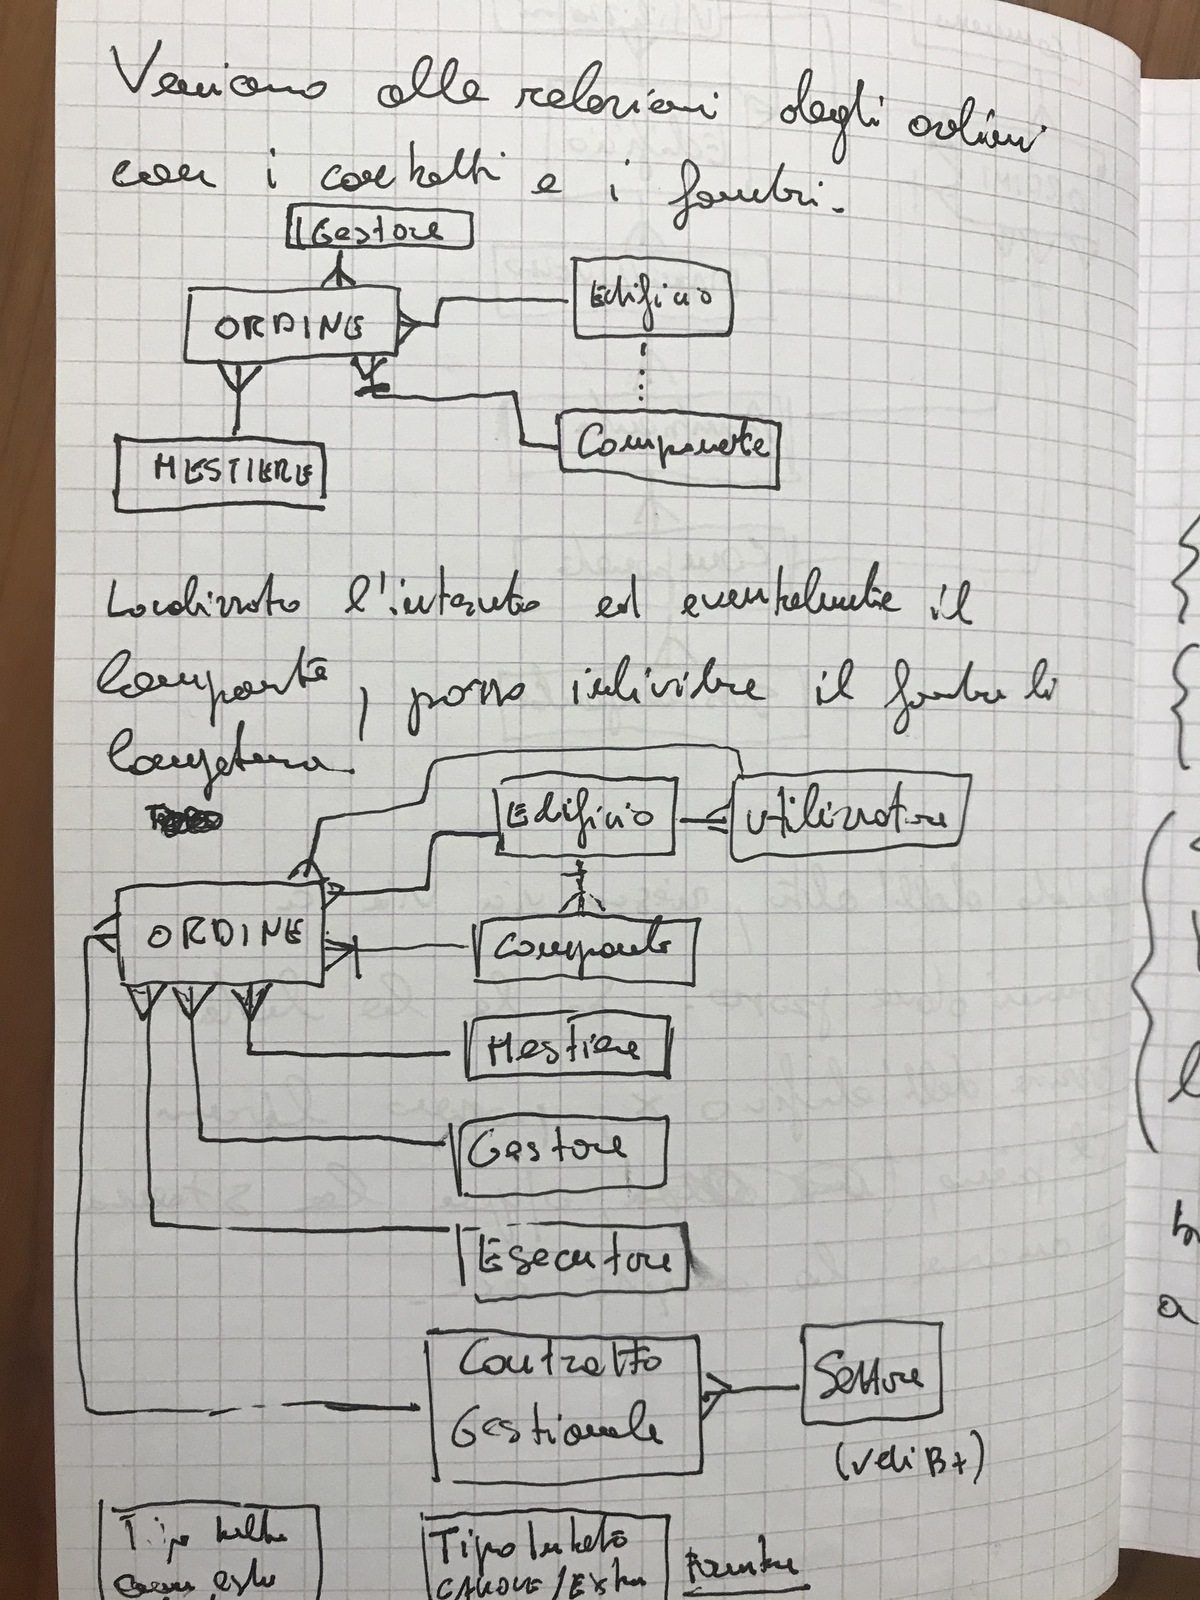 Veniamo alle relazioni degli ordini
con i contratti e i fornitori.
Gestore
ORDINE
Edificio
MESTIERE
Componente
Localizzato l'intervento ed eventualmente il
componente, posso individuare il
competenza.
Edificio
Utilizzatore
ORDINE
Componente
Mestiere
Gestore
Esecutore
Contratto
Gestionale
Settore
(vedi B+)
Tipo
Tipo
CANONE / Extra